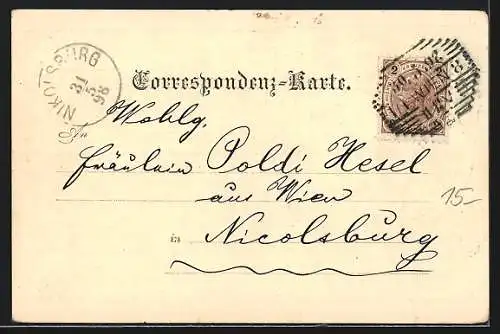 NIKOLSBURG
31
5
98
2
Correspondenz-Karte.
An
Wohlg.
Fräulein Poldi Hesel
aus Wien
in Nicolsburg
15-